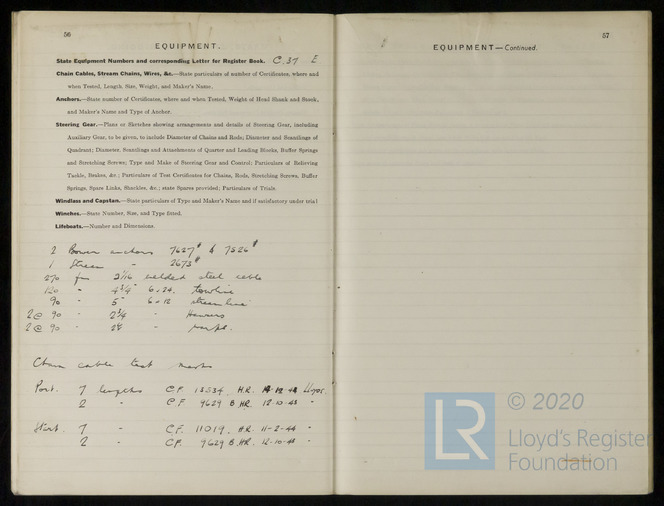 56
EQUIPMENT.
State Equipment Numbers and corresponding Letter for Register Book. C.37 E
Chain Cables, Stream Chains, Wires, &c.—State particulars of number of Certificates, where and
when Tested, Length, Size, Weight, and Maker's Name.
Anchors.—State number of Certificates, where and when Tested, Weight of Head Shank and Stock,
and Maker's Name and Type of Anchor.
Steering Gear.—Plans or Sketches showing arrangements and details of Steering Gear, including
Auxiliary Gear, to be given, to include Diameter of Chains and Rods; Diameter and Scantlings of
Quadrant; Diameter, Scantlings and Attachments of Quarter and Leading Blocks, Buffer Springs
and Stretching Screws; Type and Make of Steering Gear and Control; Particulars of Relieving
Tackle, Brakes, &c.; Particulars of Test Certificates for Chains, Rods, Stretching Screws, Buffer
Springs, Spare Links, Shackles, &c.; state Spares provided; Particulars of Trials.
Windlass and Capstan.—State particulars of Type and Maker's Name and if satisfactory under trial
Winches.—State Number, Size, and Type fitted.
Lifeboats.—Number and Dimensions.
2 Bower anchors 7627# & 7526#
1 Stream " 2673#
270 fms 2 1/16 welded steel cable
120 " 4 3/4" 6-24. towline
90 " 5" 6-12 stream line
2@ 90 " 2 3/4 " Hawsers
2@ 90 "
Chain cable test marks
Port. 7 lengths C.F. 13534 H.R. 44 Lloyds.
2 " C.F. 9629 B HR. 12-10-43 "
Start. 7 " C.F. 11019. H.R. 11-2-44 "
2 " C.F. 9629 B. HR. 12-10-43 "
57
EQUIPMENT—Continued.
LR
© 2020
Lloyd's Register
Foundation